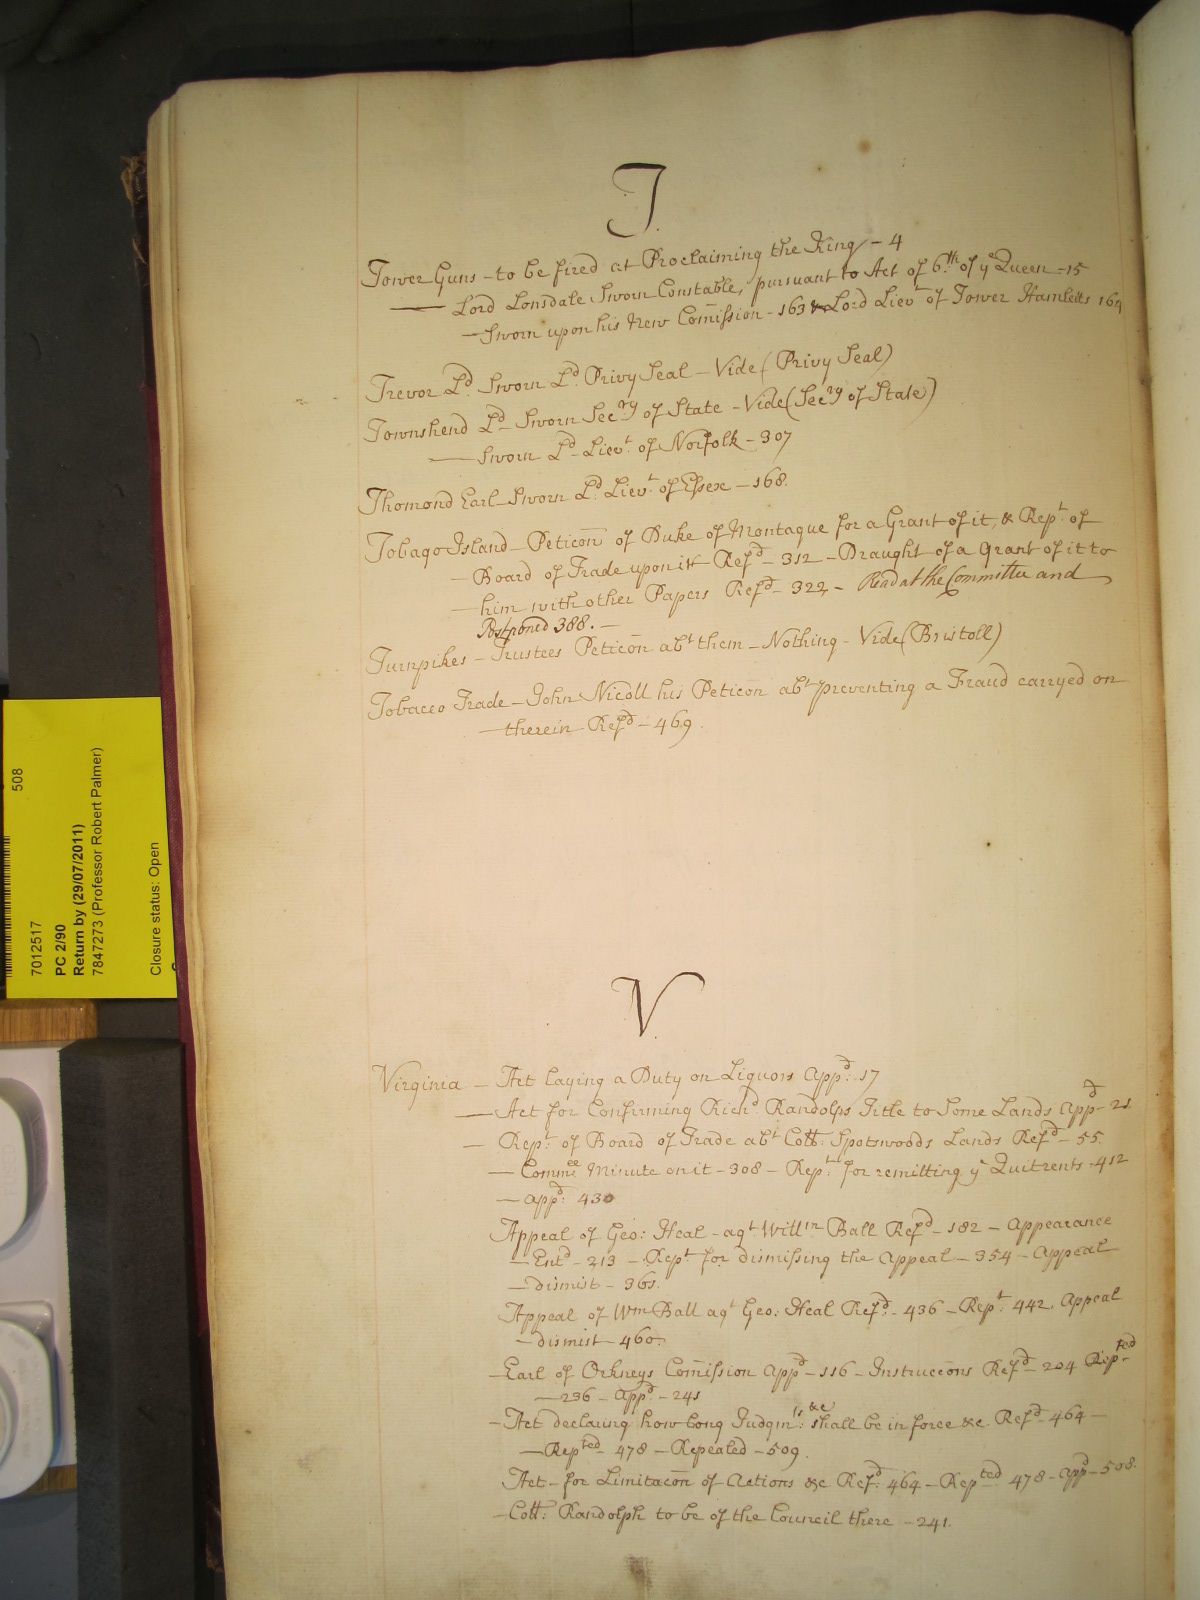 T
Tower Guns - to be fired at Proclaiming the King - 4
— Lord Lonsdale Sworn Constable, pursuant to Act of 6.th of ye Queen - 15
— Sworn upon his New Com̄ission - 163 & Lord Lievt of Tower Hamletts 164
Trevor Ld. Sworn Ld. Privy Seal - Vide (Privy Seal)
Townshend Ld - Sworn Secry of State - Vide (Secry of State)
— Sworn Ld Lievt. of Norfolk - 307
Thomond Earl - Sworn Ld Lievt. of Essex - 168.
Tobago Island - Peticōn of Duke of Montague for a Grant of it, & Rept. of
— Board of Trade upon it Refd - 312 - Draught of a Grant of it to
— him with other Papers Refd - 322 - Read at the Committee and
Postponed 388. —
Turnpikes - Trustees Peticōn abt them - Nothing - Vide (Bristoll)
Tobacco Trade - John Nicoll his Peticōn abt preventing a Fraud carryed on
— therein Refd - 469.
V
Virginia — Act laying a Duty on Liquors Appd. 17
— Act for Confirming Richd Randolps Title to Some Lands Appd - 21
— Rept. of Board of Trade abt Coll: Spotswoods Lands Refd - 55.
— Commee. Minute on it - 308 - Rept. for remitting ye Quitrents - 412
— appd. 430
Appeal of Geo: Heal - agt Willm Ball Refd - 182 - Appearance
— Entd - 213 - Rept for dismissing the Appeal - 354 - Appeal
— dismist - 361.
Appeal of Wm Ball agt Geo: Heal Refd. - 436 - Rept. 442. Appeal
— dismist - 460.
— Earl of Orkneys Com̄ission appd - 116 - Instruccōns Refd - 204 Repted
— 236 - Appd - 241
— Act declaring how long Judgmts. &c shall be in force &c. Refd - 464 —
— Repted 478 - Repealed - 509.
Act - for Limitacōn of Actions &c Refd. 464 - Repted 478 - appd - 508.
— Coll: Randolph to be of the Council there - 241.
508
7012517
PC 2/90
Return by (29/07/2011)
7847273 (Professor Robert Palmer)
Closure status: Open